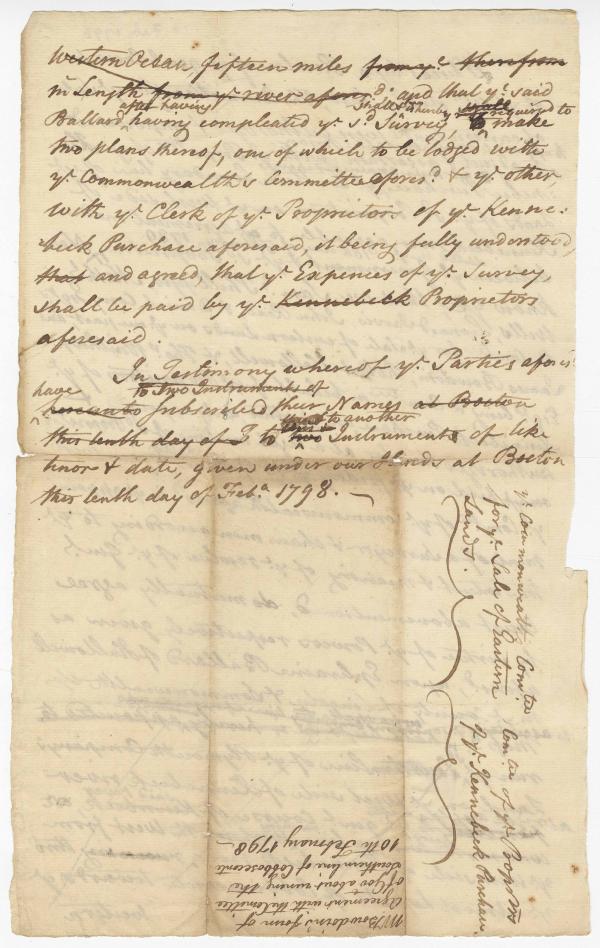 Western Ocean, fifteen miles from ye. therefrom
in Length from ye. river aforesd. and that ye. said
after having shall & thereby requered to
Ballard having compleated ye. sd. Survey, to make
two plans thereof, one of which to be lodged with
ye. Commonwealth's Committee aforesd. & ye. other,
with ye. Clerk of ye. Proprietors of ye. Kenne:
beck Purchase aforesaid, it being fully understood,
that and agreed, that ye. Expences of ye. Survey,
shall be paid by ye. Kennebeck Proprietors
aforesaid.
In Testimony whereof ye. Parties afores:
have to two Instruments of
hereunto subscribed their Names at Boston
and to another
this tenth day of F to this & two Instruments of like
tenor & date, given under our Hands at Boston
this tenth day of Feba. 1798. —
ye. Commonwealth Comtee
for ye. Sale of Eastern
Lands.
Comtee of ye. Proptors
of ye. Kennebeck Purchase.
Mr Bowdoin's form of
agreement with the Comittee
of Geo about runing the
southern line of Cobbosecente
10th February 1798 —